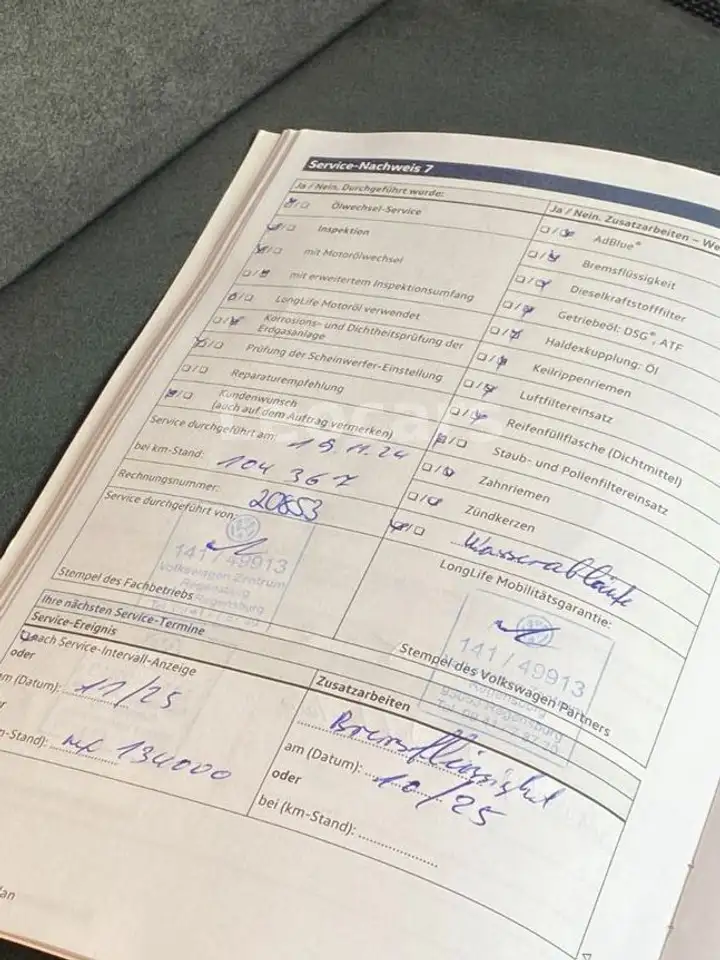 Service-Nachweis 7
Ja / Nein, Durchgeführt wurde:
Ölwechsel-Service
Inspektion
mit Motorölwechsel
mit erweitertem Inspektionsumfang
LongLife Motoröl verwendet
Korrosions- und Dichtheitsprüfung der
Erdgasanlage
Prüfung der Scheinwerfer-Einstellung
Reparaturempfehlung
Kundenwunsch
(auch auf dem Auftrag vermerken)
Service durchgeführt am: 19.11.24
bei km-Stand: 104 367
Rechnungsnummer: 20653
Service durchgeführt von:
141 / 49913
Volkswagen Zentrum
Regensburg
Stempel des Fachbetriebs
Ja / Nein. Zusatzarbeiten – We
AdBlue®
Bremsflüssigkeit
Dieselkraftstofffilter
Getriebeöl: DSG®, ATF
Haldexkupplung: Öl
Keilrippenriemen
Luftfiltereinsatz
Reifenfüllflasche (Dichtmittel)
Staub- und Pollenfiltereinsatz
Zahnriemen
Zündkerzen
Wasserabläufe
LongLife Mobilitätsgarantie:
141 / 49913
Regensburg
Stempel des Volkswagen Partners
Ihre nächsten Service-Termine
Service-Ereignis
nach Service-Intervall-Anzeige
oder
m (Datum): 11/25
m-Stand): 134000
Zusatzarbeiten
Bremsflüssigkeit
am (Datum): 10/25
oder
bei (km-Stand):